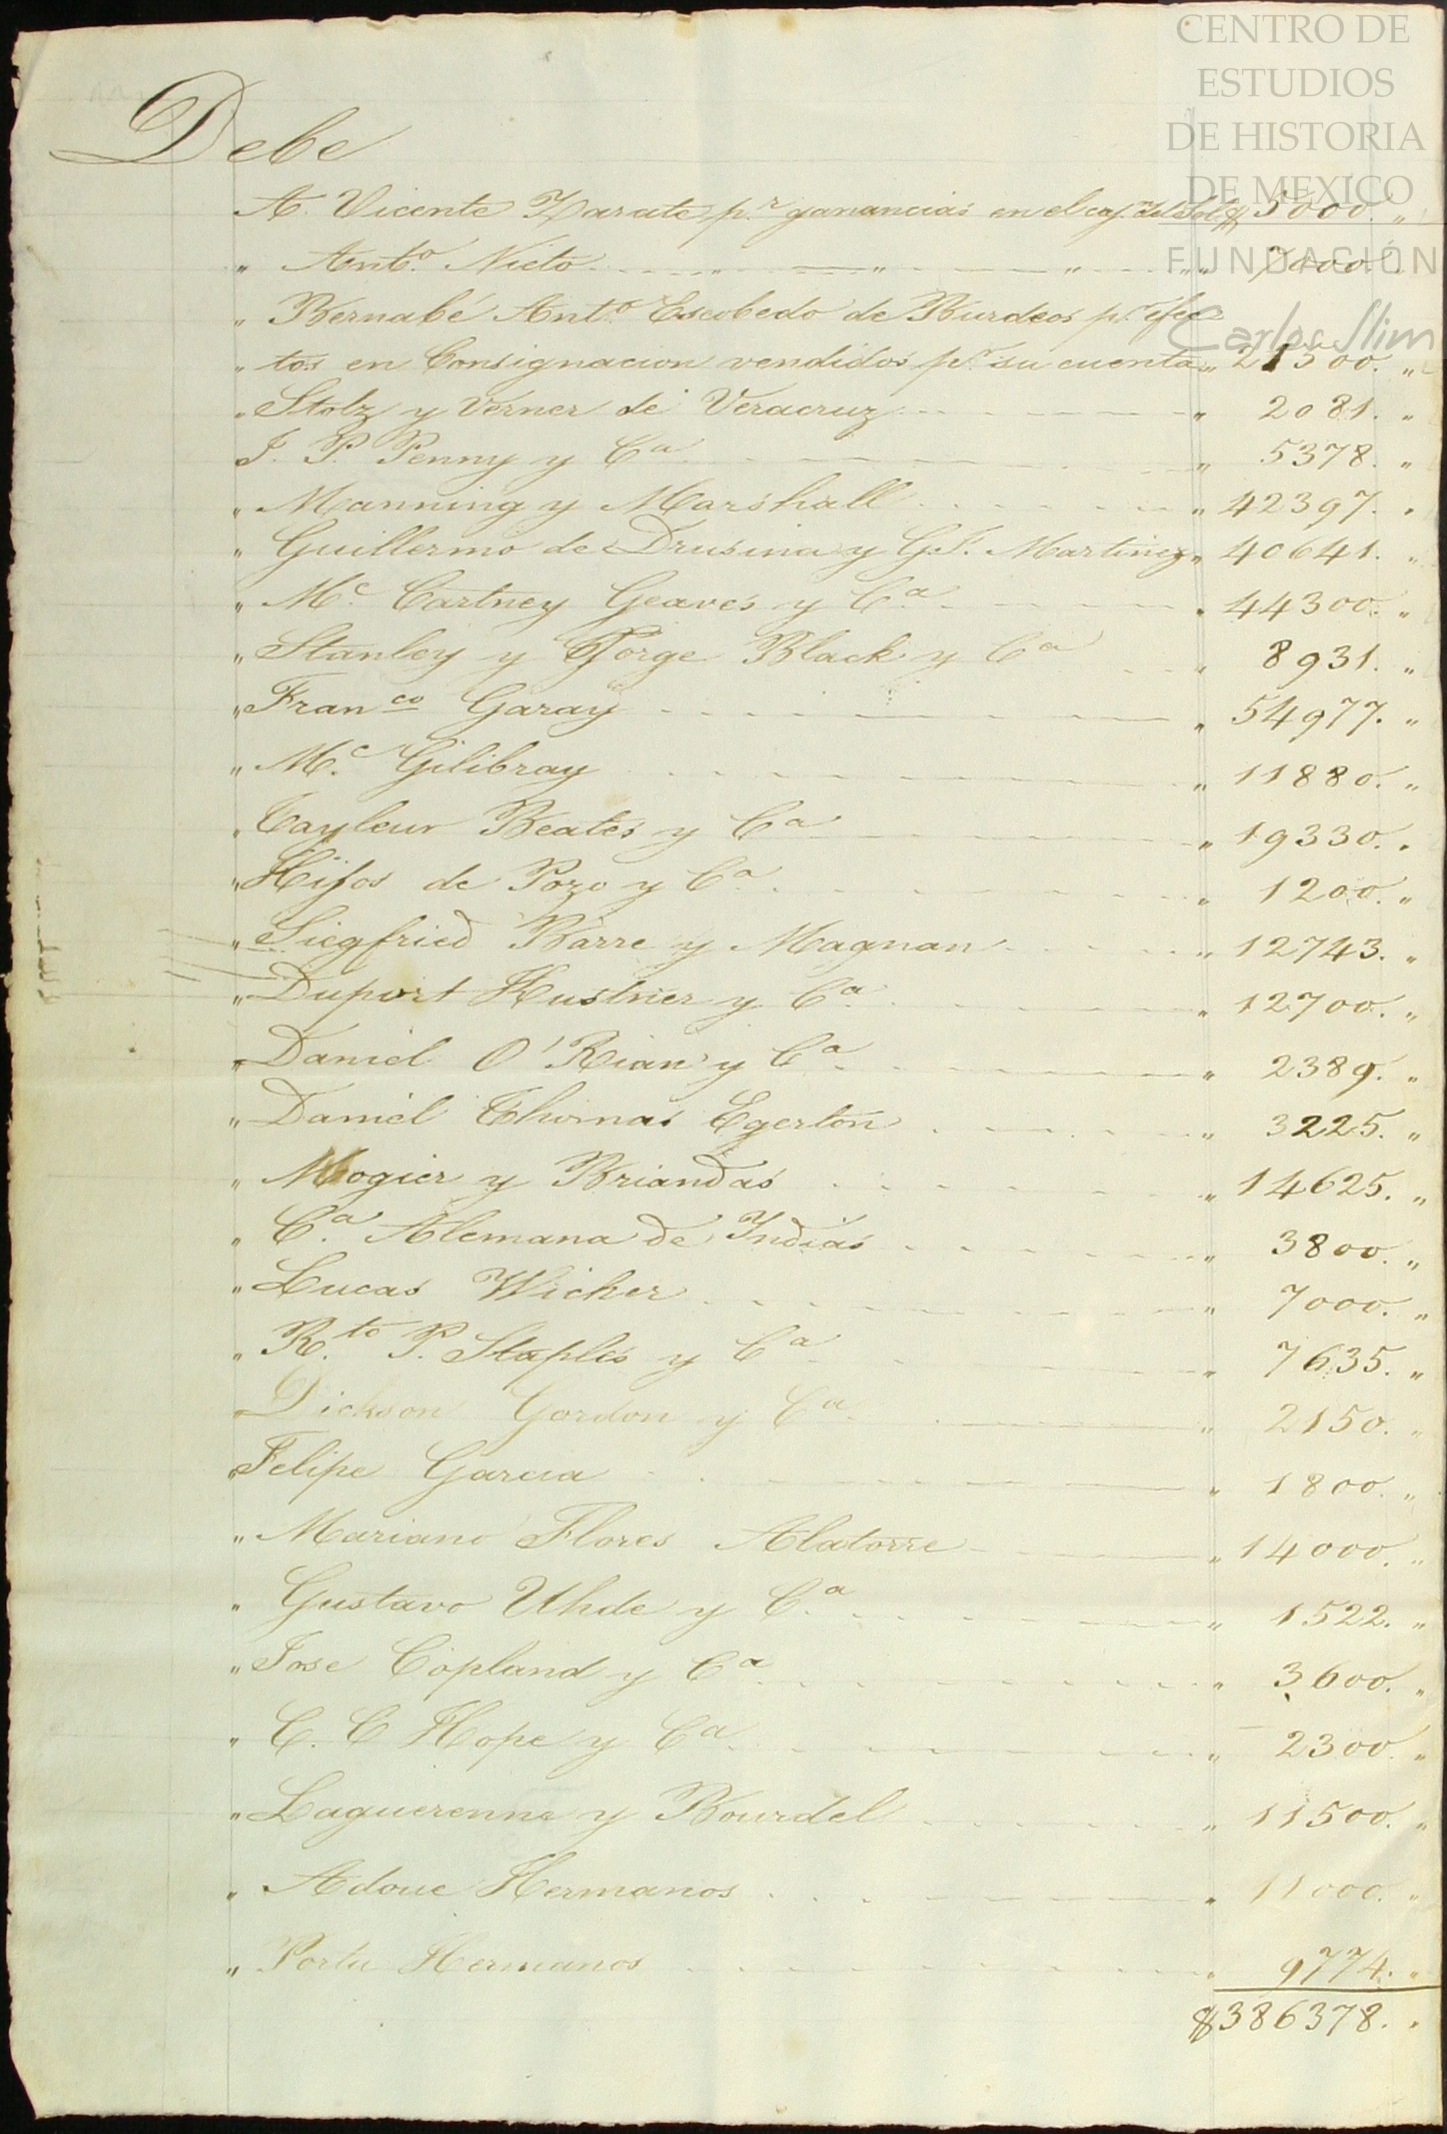 CENTRO DE
ESTUDIOS
DE HISTORIA
DE MEXICO
FUNDACIÓN
Carlos Slim
Debe
A. Vicente Zarate p.r ganancias en el caj.n del Sol $ 5000. "
" Ant.o Nieto " " " 7000. "
" Bernabé Ant.o Escobedo de Burdeos p.r efec-
" tos en Consignacion vendidos p.r su cuenta " 21500. "
" Stolz y Verner de Veracruz " 2081. "
J. P. Penny y C.a " 5378. "
" Manning y Marshall " 42397. "
" Guillermo de Drusina y G. F. Martinez " 40641. "
" M.c Cartney Geaves y C.a " 44300. "
" Stanley y Jorge Black y C.a " 8931. "
" Fran.co Garay " 54977. "
" M.c Gilibray " 11880. "
" Tayleur Beates y C.a " 19330. "
" Hijos de Pozo y C.a " 1200. "
" Siegfried Barre y Magnan " 12743. "
" Duport Kustner y C.a " 12700. "
" Daniel O'Rian y C.a " 2389. "
" Daniel Thomas Egerton " 3225. "
" Mogier y Briandas " 14625. "
" C.a Alemana de Indias " 3800. "
" Lucas Wicher " 7000. "
" R.to P. Staples y C.a " 7635. "
" Dickson Gordon y C.a " 2150. "
" Felipe Garcia " 1800. "
" Mariano Flores Alatorre " 14000. "
" Gustavo Uhde y C.a " 1522. "
" Jose Copland y C.a " 3600. "
" C. C Hope y C.a " 2300. "
" Laguerenne y Bourdel " 11500. "
" Adoue Hermanos " 11000. "
" Portu Hermanos " 9774. "
$386378. "